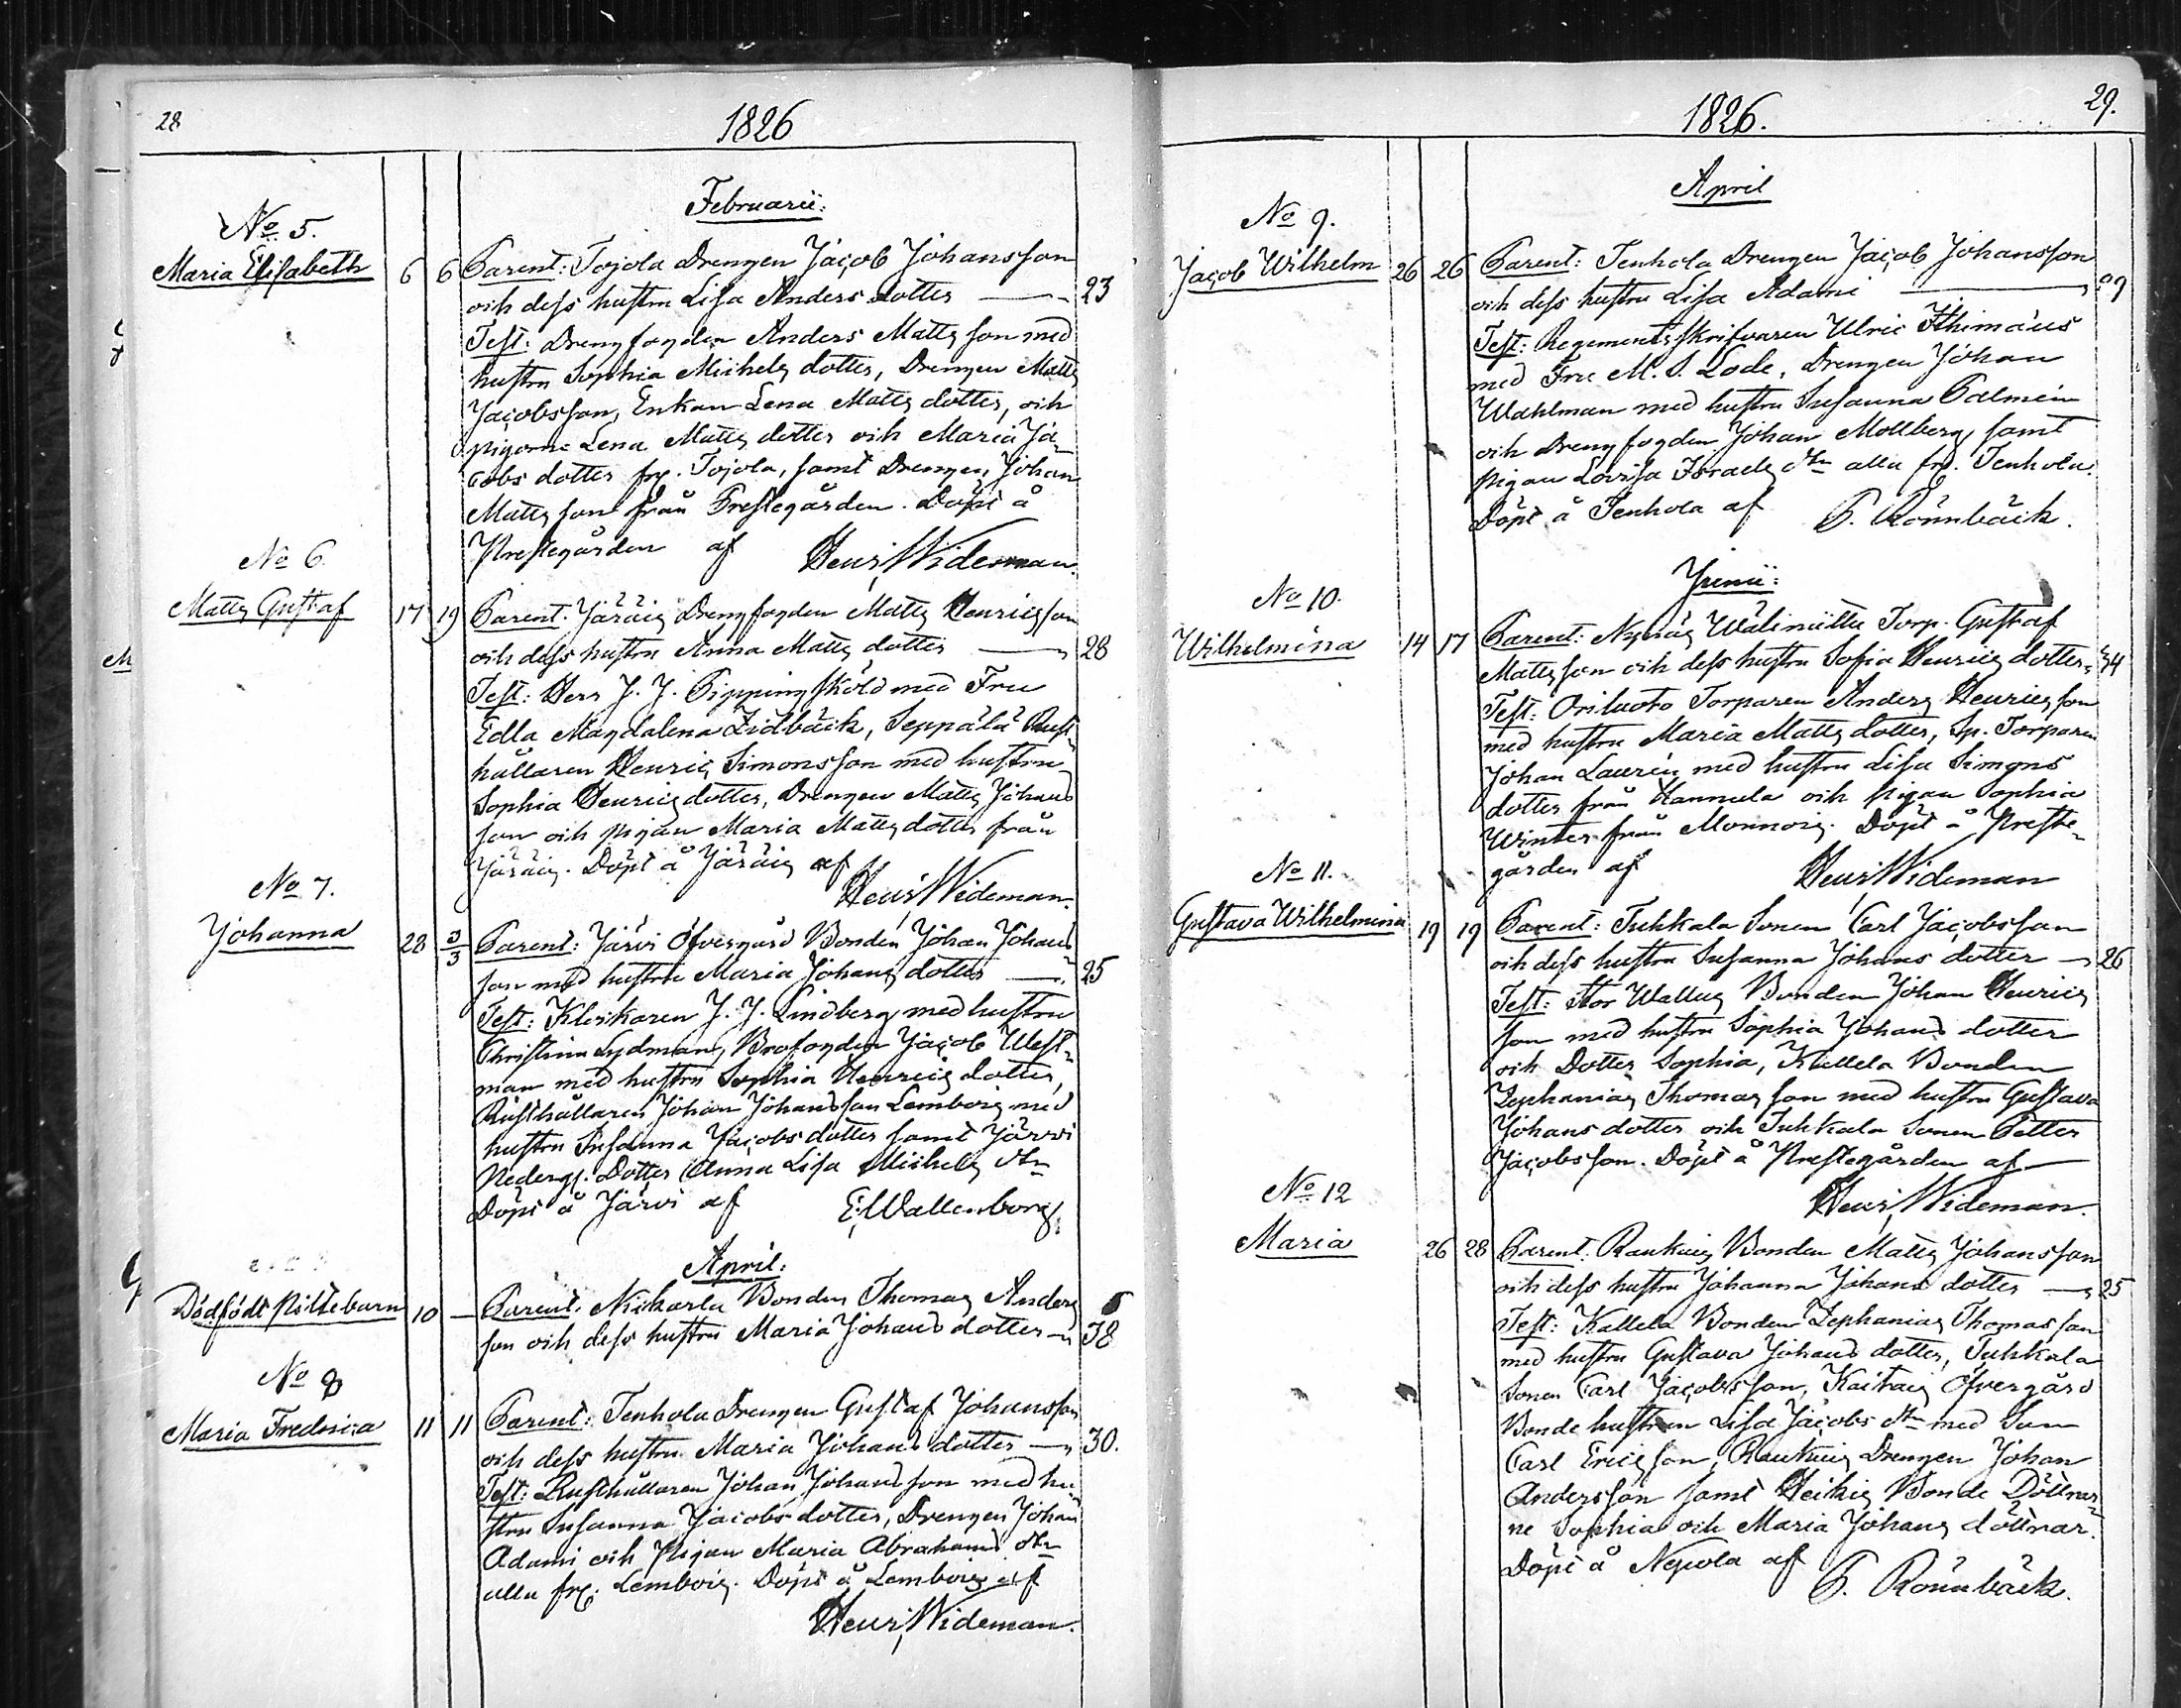 28
1826
Februarii:
No 5.
Maria Elisabeth 6 6 Parent: Tojola Drengen Jacob Johansson
och dess hustru Lisa Anders dotter — 23
Test: Drengfogden Anders Mattsson med
hustru Sophia Michels dotter, Drengen Matts
Jacobsson, Enkan Lena Matts dotter, och
pigorne Lena Matts dotter och Maria Ja-
cobs dotter fr. Tojola, samt Drengen Johan
Mattsson från Prestegården. Döpt å
Prestegården af Henr. Wideman.
No 6.
Matts Gustaf 17 19 Parent: Drengfogden Matts Henricsson
och dess hustru Anna Matts dotter — 28
Test: Herr J. J. Pippingsköld med Fru
Edla Magdalena Lidbäck, Seppälä Rust-
hållaren Henric Simonsson med hustru
Sophia Henrics dotter, Drengen Matts Johans
son och pigan Maria Matts dotter från
Döpt å af
Henr. Wideman.
No 7.
Johanna 28 3/3 Parent: Järvi Öfvergård Bonden Johan Johans-
son med hustru Maria Johans dotter — 25
Test: Klockaren J. J. Lindberg med hustru
Christina Lydman, Brofogden Jacob West-
man med hustru Sophia Henrics dotter,
Rusthållaren Johan Johansson Lembois med
hustru Susanna Jacobs dotter samt Järvi
Nederg. Dotter Anna Lisa Michels dtr
Döpt å Järvi af E. Wallenborg.
April:
Dödfödt piltebarn 10 — Parent: Nickarla Bonden Thomas Anders
son och dess hustru Maria Johans dotter — 38
No 8
Maria Fredrica 11 11 Parent: Tenhola Drengen Gustaf Johansson
och dess hustru Maria Johans dotter — 30.
Test: Rusthållaren Johan Johansson med hu-
stru Susanna Jacobs dotter, Drengen Johan
Adami och Pigan Maria Abrahams dtr
alla fr. Lembois. Döpt å Lembois af
Henr. Wideman.
29.
1826.
April
No 9.
Jacob Wilhelm 26 26 Parent: Tenhola Drengen Jacob Johansson
och dess hustru Lisa Adami —
Test: Regementsskrifvaren Ulric Ithimäus
med Fru M. S. Lode, Drengen Johan
Wahlman med hustru Susanna Palmén
och Drengfogden Johan Mollberg, samt
pigan Lovisa Israels dtr alla fr. Tenhola.
Döpt å Tenhola af P. Rönnbäck.
Junii:
No 10.
Wilhelmina 14 17 Parent: Nynäs Wälimäki Torp. Gustaf
Mattsson och dess hustru Sofia Henrics dotter 34
Test: Oriluoto Torparen Anders Henricsson
med hustru Maria Matts dotter, Sp. Torparen
Johan Laurén med hustru Lisa Simons
dotter från Hannula och pigan Sophia
Winter från Monnois. Döpt å Preste-
gården af Henr. Wideman
No 11.
Gustava Wilhelmina 19 19 Parent: Tuhkala Sonen Carl Jacobsson
och dess hustru Susanna Johans dotter — 26
Test: Stor Wallus Bonden Johan Henrics
son med hustru Sophia Johans dotter
och Dotter Sophia, Kallela Bonden
Zephanias Thomas son med hustru Gustava
Johans dotter och Tuhkala Sonen Petter
Jacobsson. Döpt å Prestegården af
Henr. Wideman.
No 12
Maria 26 28 Parent: Raukuis Bonden Matts Johansson
och dess hustru Johanna Johans dotter — 25
Test: Kallela Bonden Zephanias Thomasson
med hustru Gustava Johans dotter, Tuhkala
Sonen Carl Jacobsson, Kaitais Öfvergård
Bonde hustrun Lisa Jacobs dtr med Son
Carl Ericsson, Raukuis Drengen Johan
Andersson samt Heikis Bonde Döttrar-
ne Sophia och Maria Johans döttrar.
Döpt å Nepola af P. Rönnbäck.